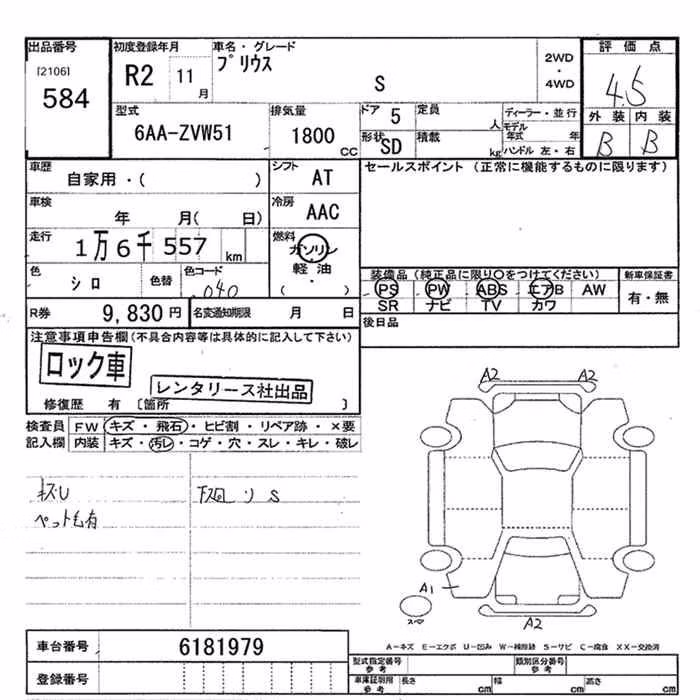 出品番号
[2106]
584
初度登録年月
R2 11月
車名・グレード
プリウス
S
2WD
・
4WD
評価点
4.5
外装 内装
B B
型式
6AA-ZVW51
排気量
1800 CC
ドア 5
定員 人
形状 SD
積載 kg
ディーラー・並行
モデル年式 年
ハンドル 左・右
車歴
自家用・( )
シフト AT
車検
年 月( 日)
冷房 AAC
走行
1万6千557 km
燃料
ガソリン
軽油
( ・ )
色
シロ
色替
色コード
040
R券 9,830円
名変通知期限 月 日
セールスポイント (正常に機能するものに限ります)
装備品(純正品に限り○をつけてください)
PS PW ABS エアB AW
SR ナビ TV カワ
新車保証書
有・無
後日品
注意事項申告欄(不具合内容等は具体的に記入して下さい)
ロック車
レンタリース社出品
修復歴 有 [箇所 ]
検査員 FW キズ・飛石・ヒビ割・リペア跡・×要
記入欄 内装 キズ・汚レ・コゲ・穴・スレ・キレ・破レ
キズU
ペット毛有
下廻りS
A2 A2
A1
スペア
A2
A－キズ E－エクボ U－凹み W－補修跡 S－サビ C－腐食 XX－交換済
車台番号 6181979
登録番号
型式指定番号
参考
類別区分番号
参考
車庫証明用
参考
長さ cm
幅 cm
高さ cm